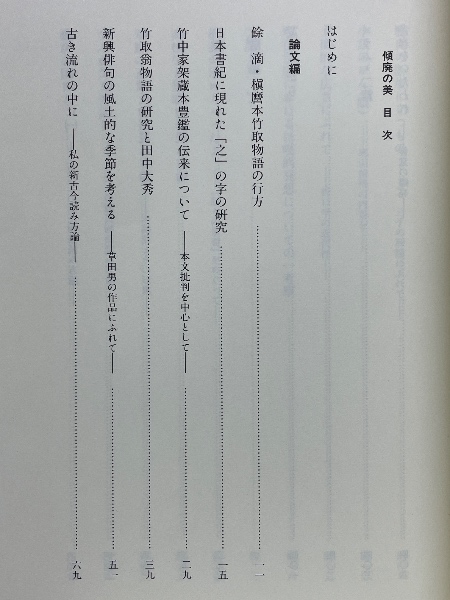 傾廃の美　目　次
はじめに
論文編
餘　滴・槇麿本竹取物語の行方……一一
日本書紀に現れた「之」の字の研究……一五
竹中家架蔵本豊鑑の伝来について――本文批判を中心として――……二九
竹取翁物語の研究と田中大秀……三九
新興俳句の風土的な季節を考える――草田男の作品にふれて――……五一
古き流れの中に――私の新古今読み方論――……六九